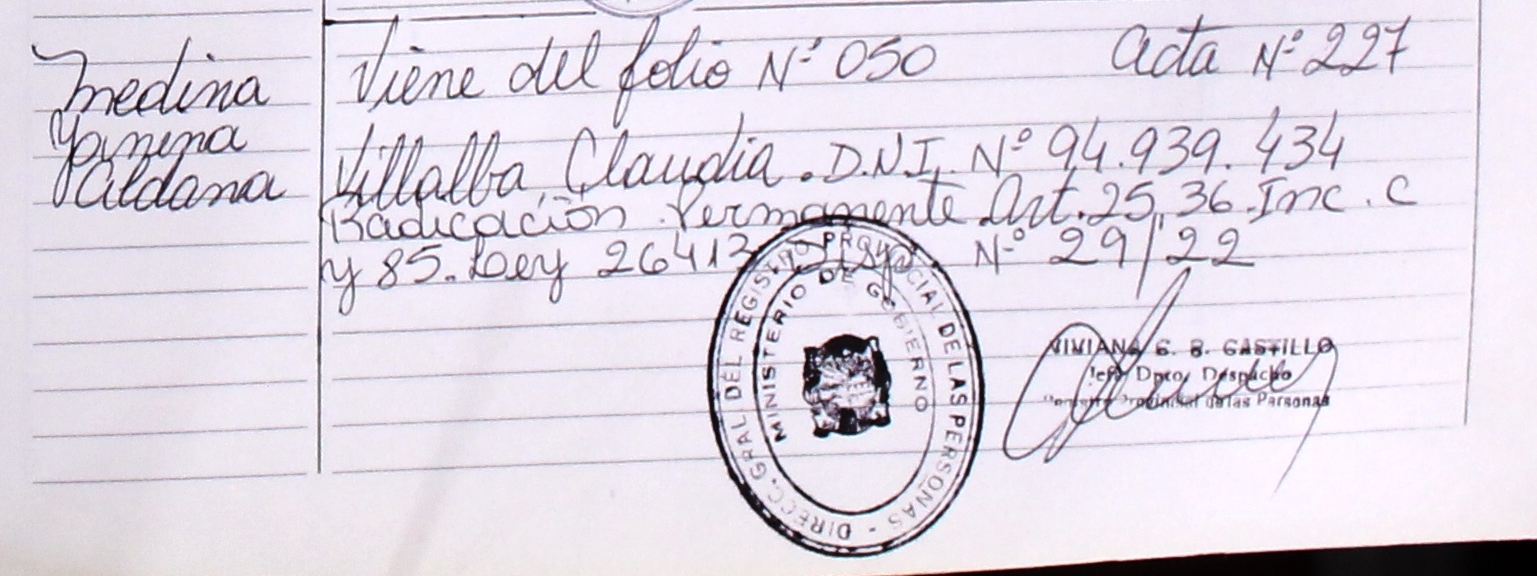 Medina
Yanina
Aldana
Viene del folio Nº 050 Acta Nº 227
Villalba, Claudia. D.N.I. Nº 94.939.434
Radicación Permanente Art. 25, 36 Inc. C
y 85. Ley 26413 Nº 29/22
DIRECC. GRAL DEL REGISTRO PROVINCIAL DE LAS PERSONAS -
MINISTERIO DE GOBIERNO
VIVIANA S. B. CASTILLO
Jefe Dpto. Despacho
Registro Provincial de las Personas